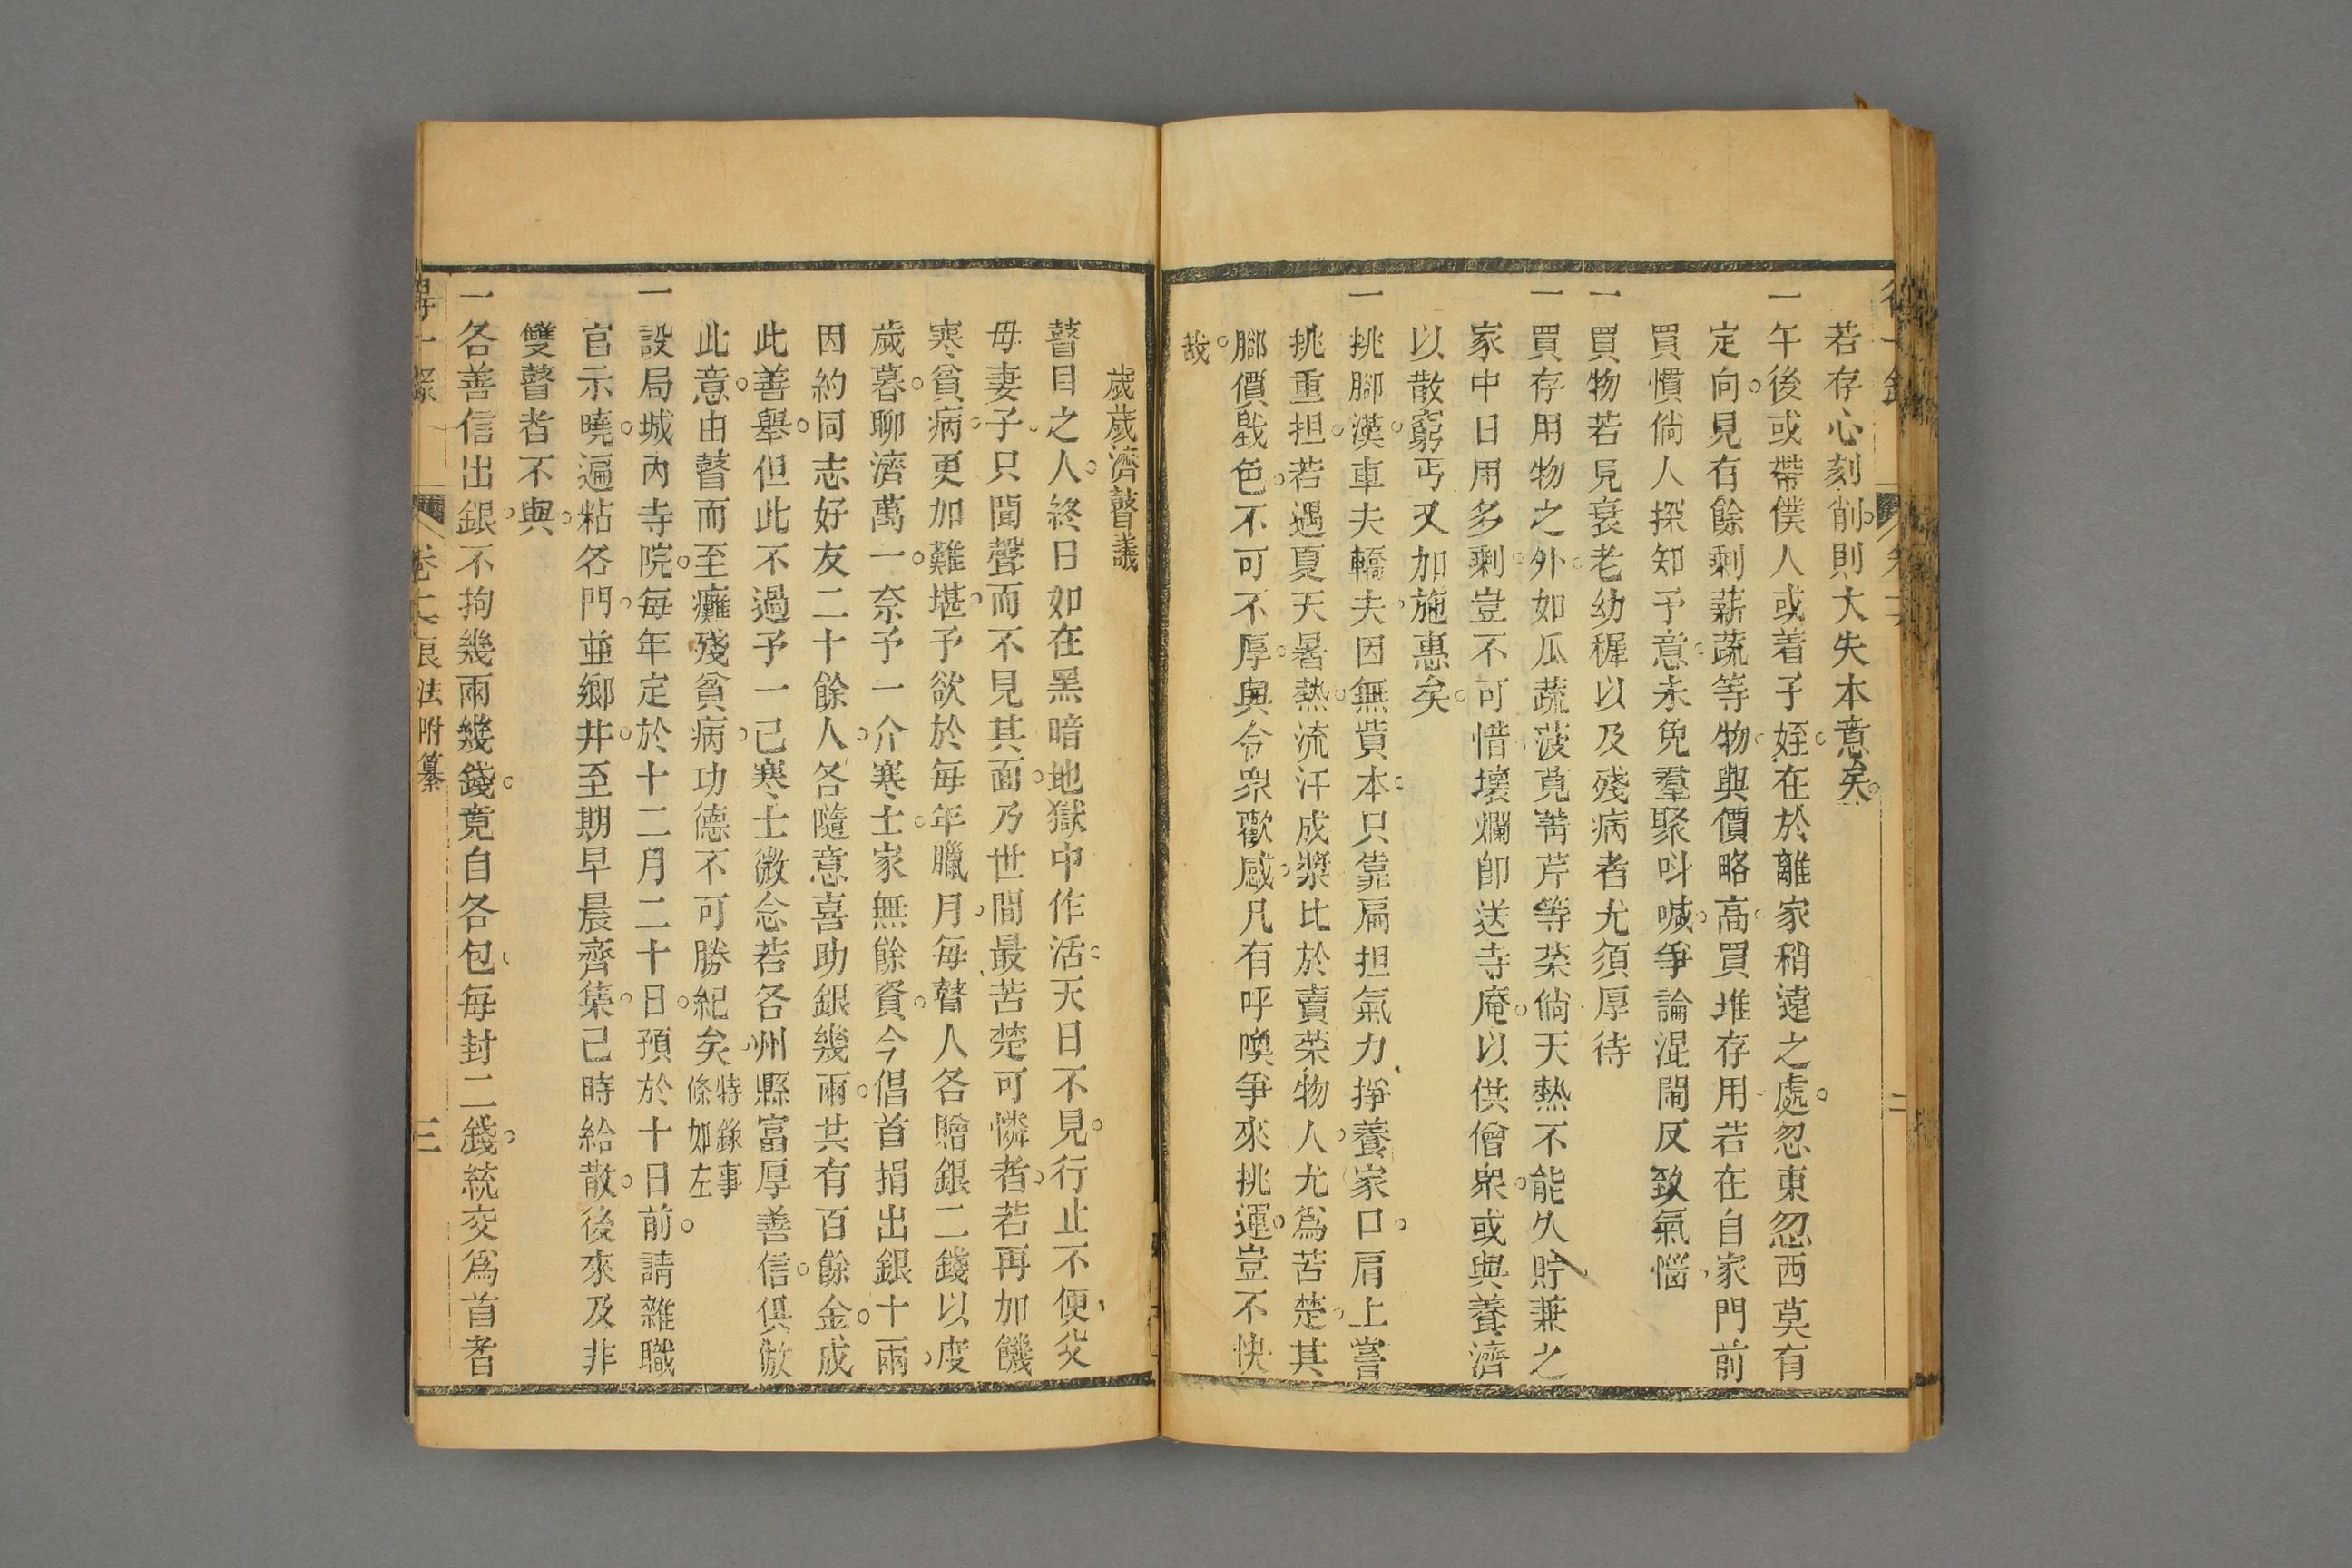 若存心刻削。則大失本意矣。
一午後或帶僕人或着子姪。在於離家稍遠之處。忽東忽西莫有
定向。見有餘剩薪蔬等物。與價略高。買堆存用若在自家門前
買慣倘人探知予意。未免羣聚叫喊。爭論混鬧反致氣惱
一買物若見衰老幼穉以及殘病者尤須厚待
一買存用物之外。如瓜蔬菠莧菁芹等菜倘天熱不能久貯兼之
家中日用多剩。豈不可惜壞爛卽送寺庵。以供僧衆。或與養濟
以散窮丐又加施惠矣。
一挑腳漢。車夫轎夫。因無貲本。只靠扁担氣力、掙養家口。肩上嘗
挑重担。若遇夏天暑熱。流汗成漿。比於賣菜物人。尤爲苦楚。其
腳價戥色。不可不厚。與令衆歡感。凡有呼喚爭來挑運。豈不快
哉。
歲歲濟瞽義
瞽目之人。終日如在黑暗地獄中作活。天日不見。行止不便、父
母妻子。只聞聲而不見其面。乃世間最苦楚可憐者。若再加饑
寒貧病。更加難堪。予欲於每年臘月。每瞽人各贈銀二錢以度
歲暮。聊濟萬一。奈予一介寒士。家無餘資。今倡首捐出銀十兩。
因約同志好友二十餘人。各隨意喜助銀幾兩。共有百餘金。成
此善舉。但此不過予一己寒士微念若各州縣富厚善信。俱倣
此意。由瞽而至癱殘貧病。功德不可勝紀矣。特錄事
條如左
一設局城內寺院。每年定於十二月二十日。預於十日前。請雜職
官示曉。遍粘各門。並鄉井。至期早晨齊集。已時給散。後來及非
雙瞽者不與。
一各善信出銀。不拘幾兩幾錢。竟自各包。每封二錢。統交爲首者
卷 良法附纂
三